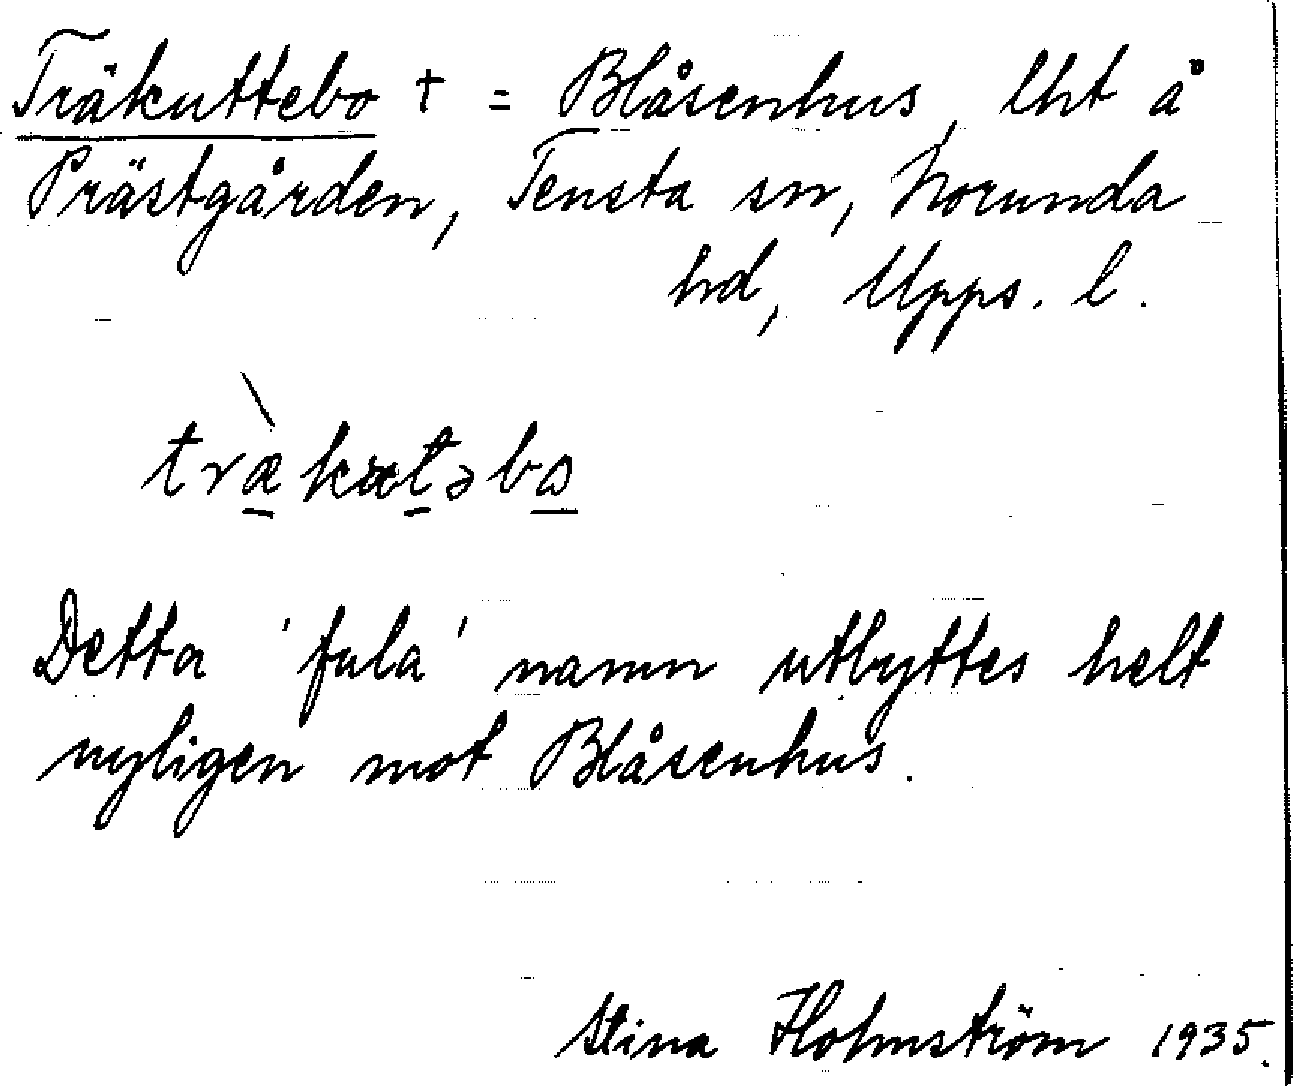 Träkuttebo † = Blåsenhus, lht å
Prästgården, Tensta sn, Norunda
hd, Upps. l.
Detta 'fula' namn utbyttes helt
nyligen mot Blåsenhus.
Stina Holmström 1935.